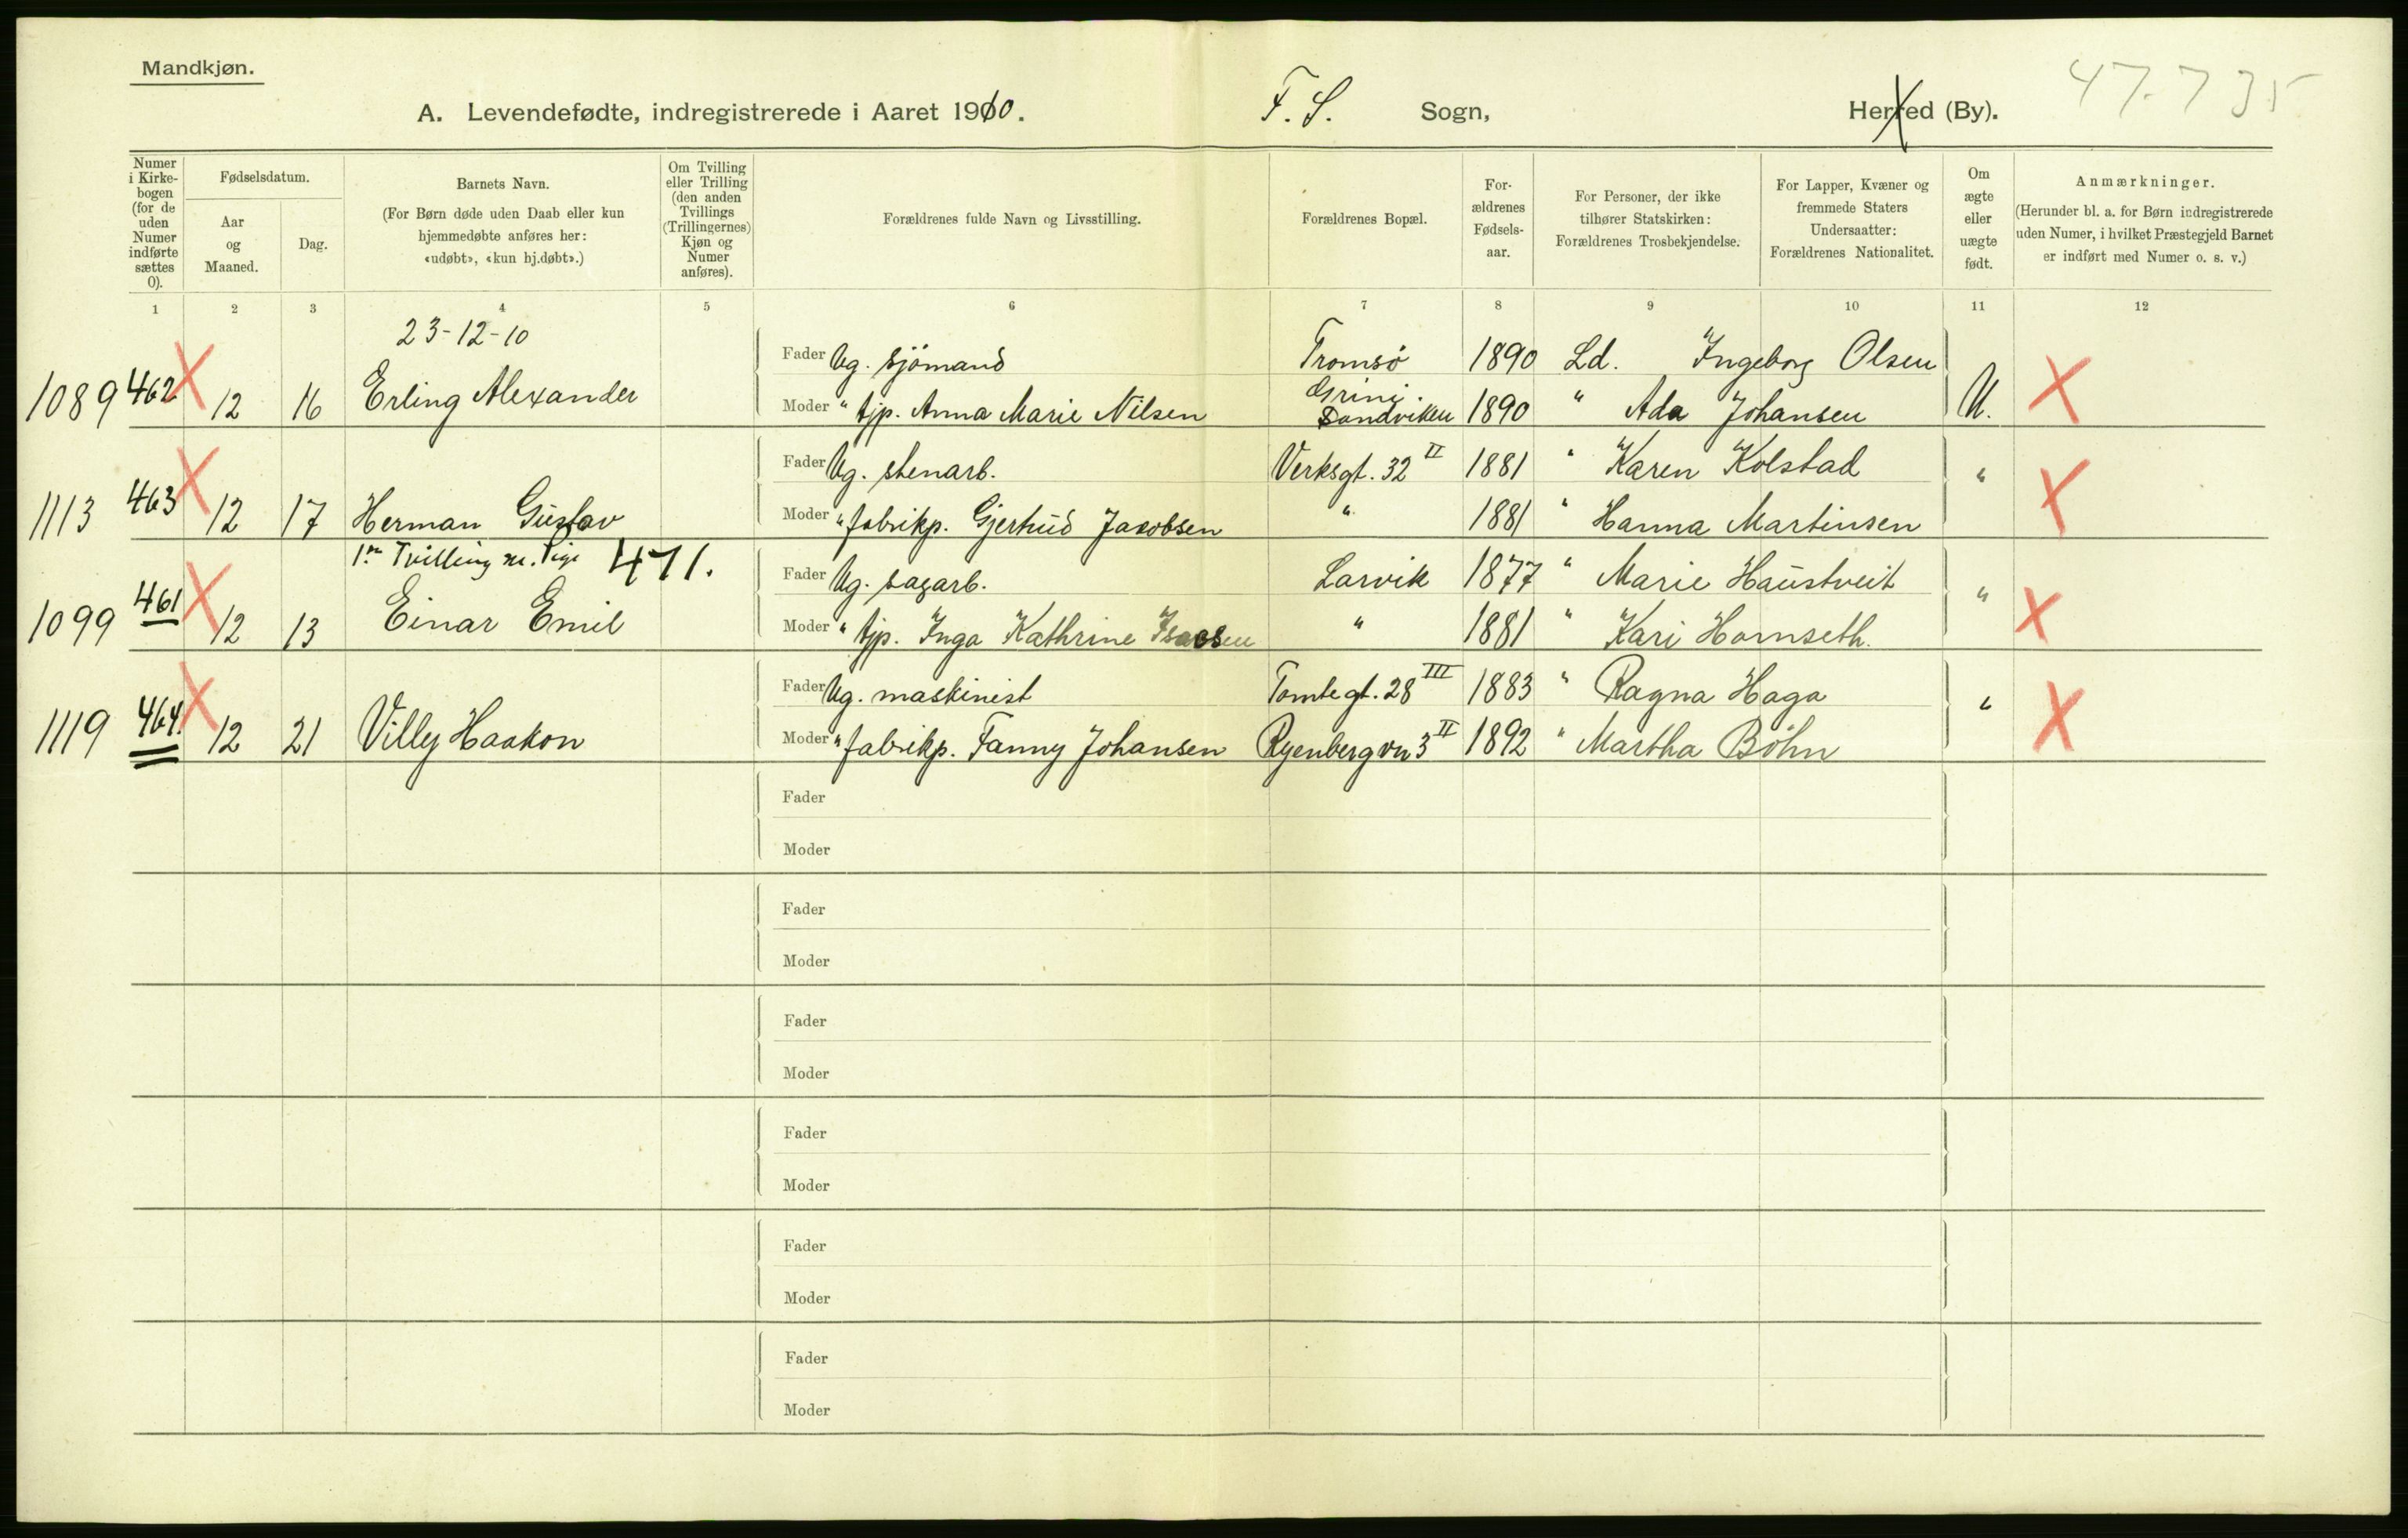 Mandkjøn.
A. Levendefødte, indregistrerede i Aaret 1910. F. S. Sogn, Herred (By). 47.735
Numer i Kirkebogen (for de uden Numer indførte sættes 0).
Fødselsdatum.
Aar og Maaned.
Dag.
Barnets Navn.
(For Børn døde uden Daab eller kun hjemmedøbte anføres her: «udøbt», «kun hj.døbt».)
Om Tvilling eller Trilling (den anden Tvillings (Trillingernes) Kjøn og Numer anføres).
Forældrenes fulde Navn og Livsstilling.
Forældrenes Bopæl.
Forældrenes Fødselsaar.
For Personer, der ikke tilhører Statskirken: Forældrenes Trosbekjendelse.
For Lapper, Kvæner og fremmede Staters Undersaatter: Forældrenes Nationalitet.
Om ægte eller uægte født.
Anmærkninger.
(Herunder bl. a. for Børn indregistrerede uden Numer, i hvilket Præstegjeld Barnet er indført med Numer o. s. v.)
1 2 3 4 5 6 7 8 9 10 11 12
23-12-10
Fader Ug. sjömand Tromsö 1890 Ld. Ingeborg Olsen
1089 462 X 12 16 Erling Alexander Moder " tjp. Anna Marie Nilsen Grini Sandviken 1890 " Ada Johansen U. X
Fader Ug. stenarb. Verksgt. 32 II 1881 " Karen Kolstad "
1113 463 X 12 17 Herman Gustav Moder " fabrikp. Gjertrud Jacobsen " 1881 " Hanna Martinsen X
1ste Tvilling m. Pige 471.
Fader Ug. sagarb. Larvik 1877 " Marie Haustveit "
1099 461 X 12 13 Einar Emil Moder " tjp. Inga Kathrine Isacsen " 1881 " Kari Hornseth. X
Fader Ug. maskinist Tomtegt. 28 III 1883 " Ragna Haga "
1119 464. X 12 21 Villy Haakon Moder " fabrikp. Fanny Johansen Ryenbergvn 3 II 1892 " Martha Böhn X
Fader
Moder
Fader
Moder
Fader
Moder
Fader
Moder
Fader
Moder
Fader
Moder